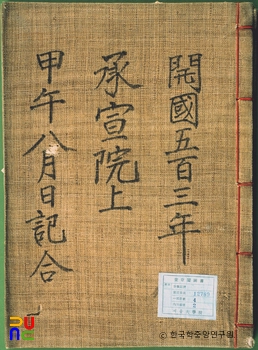 開國五百三年
承宣院上
甲午八月日記合
ⓒ 한국학중앙연구원